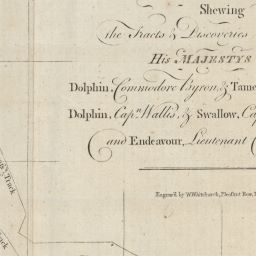 Shewing
the Tracts & Discoveries
His MAJESTYS
Dolphin, Commodore Byron, & Tame
Dolphin, Capn. Wallis, & Swallow, Ca
and Endeavour, Lieutenant
Engrav'd by W. Whitchurch, Pleasant Row, I
Track
Track